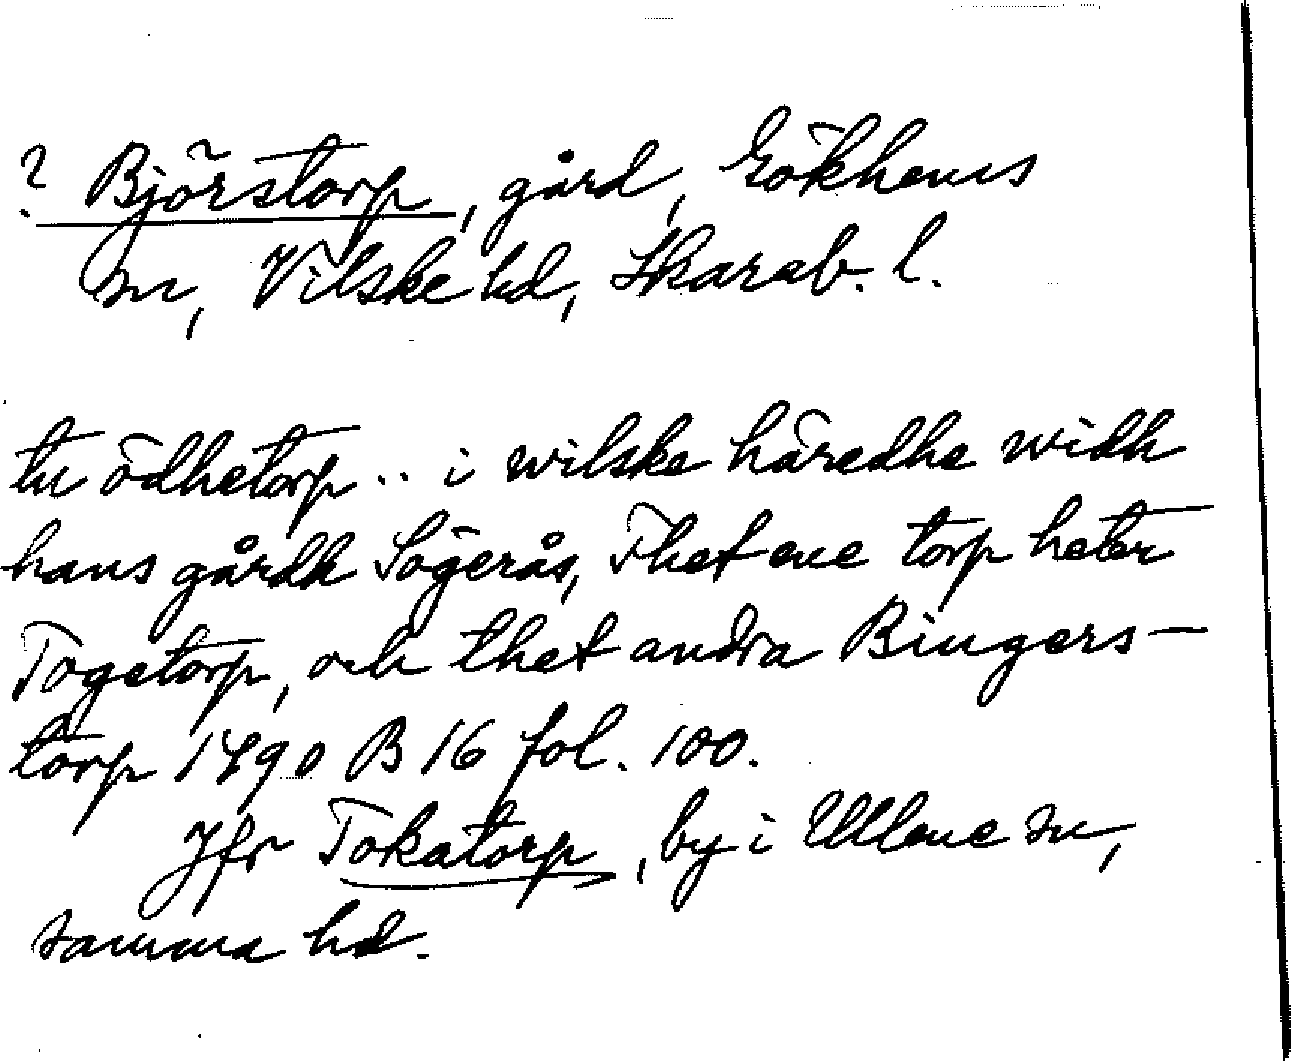 ? Björstorp, gård, Gökhems
sn, Vilske hd, Skarab. l.
tu ödhetorp .. i wilske häredhe widh
hans gårdh Sögerås, Thet ene torp heter
Togetorp, och thet andra Bingers-
torp 1490 B 16 fol. 100.
Jfr Tokatorp, by i Ullene sn,
samma hd.